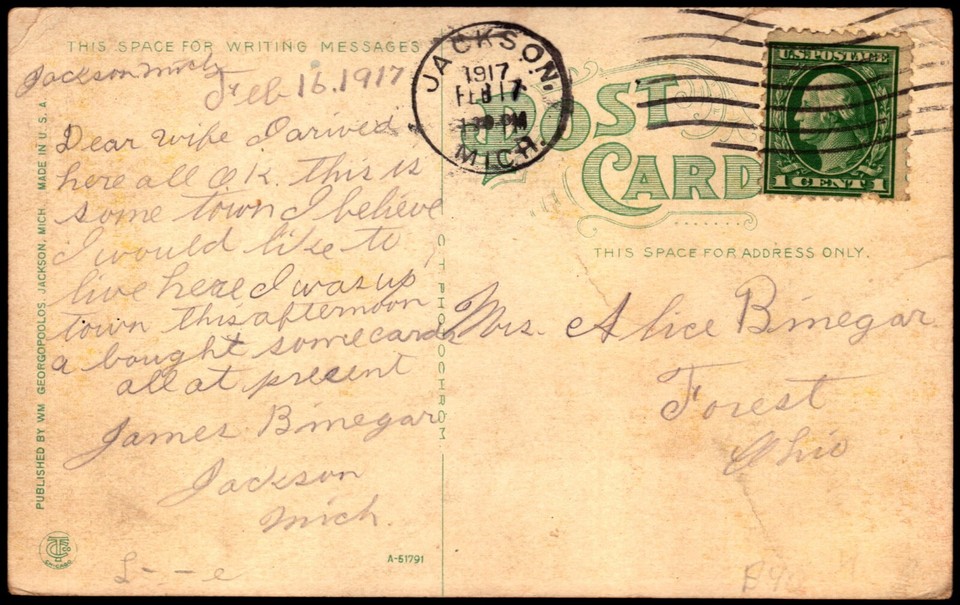 THIS SPACE FOR WRITING MESSAGES
Jackson Mich
Feb 16. 1917
Dear wife I arived
here all OK. this is
some town I believe
I would like to
live here I was up
town this afternoon
a bought some cards
all at present
James Binegar
Jackson
Mich.
PUBLISHED BY WM GEORGOPOLOS JACKSON, MICH. MADE IN U.S.A.
C.T. PHOTOCHROM
CHICAGO
A-51791
JACKSON,
1917
FEB 17
PM
MICH.
POST
CARD
U.S. POSTAGE
1 CENT 1
THIS SPACE FOR ADDRESS ONLY.
Mrs. Alice Binegar
Forest
Ohio